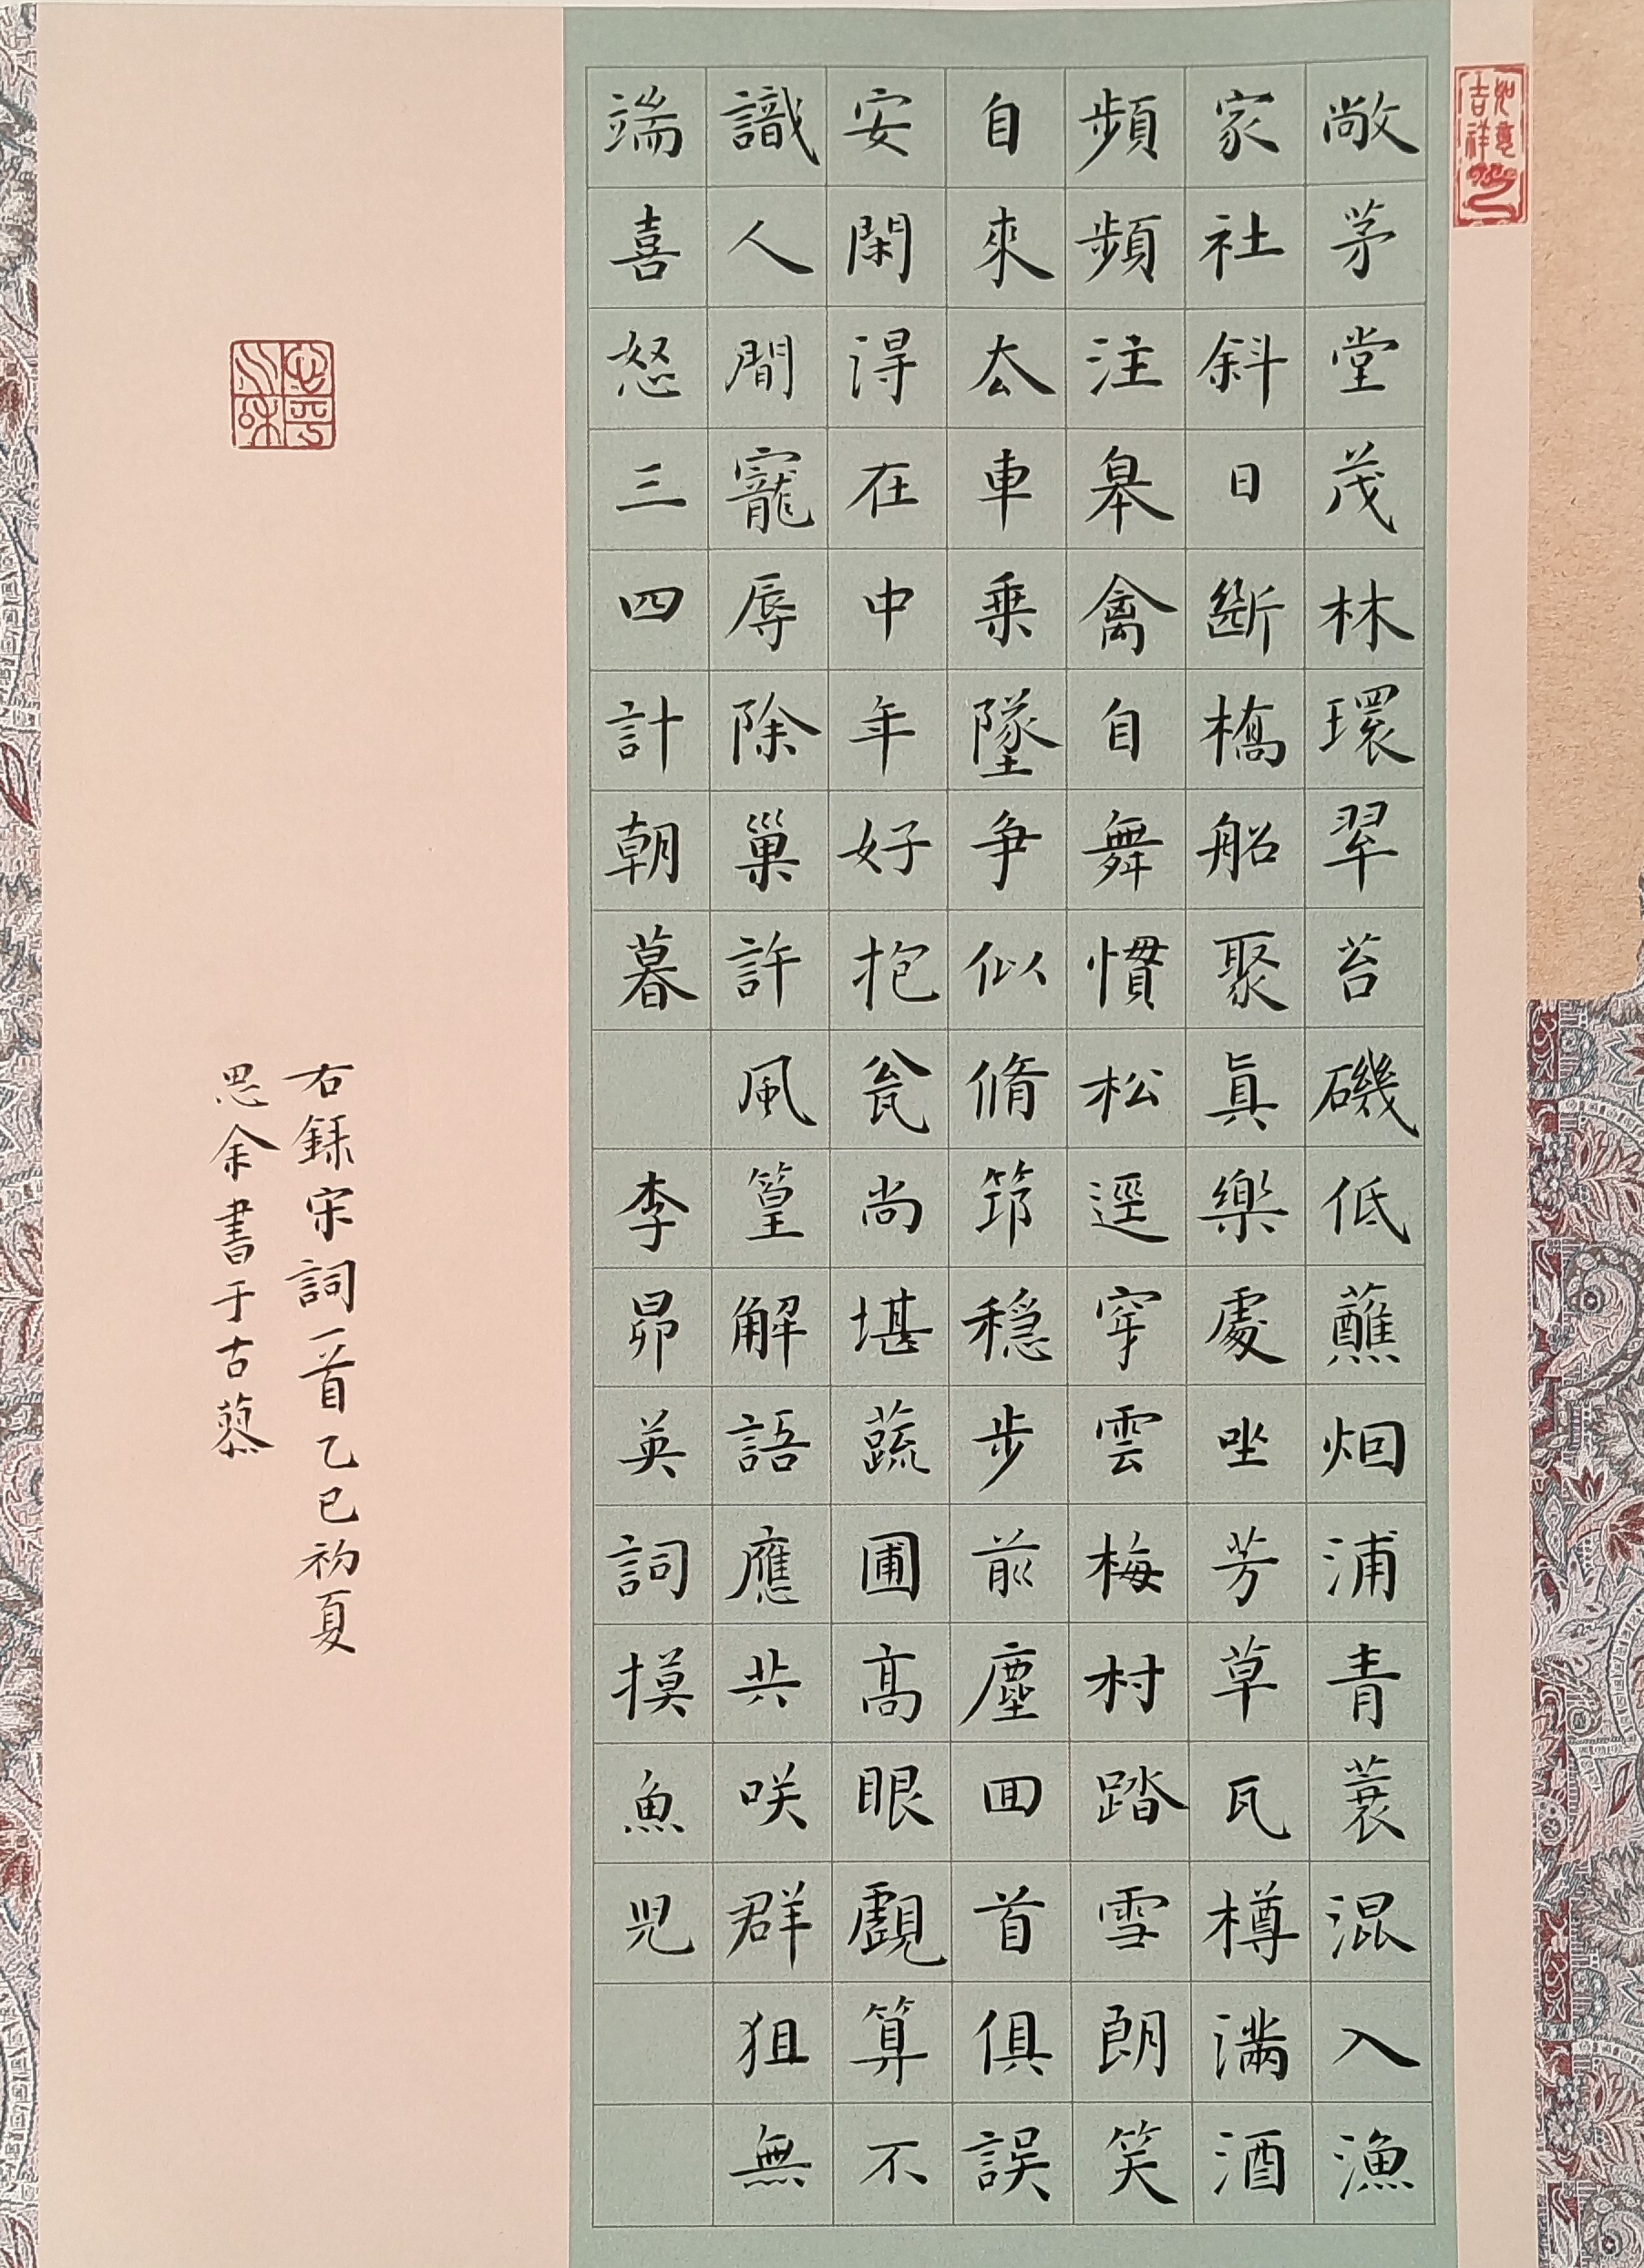 如意吉祥
敞茅堂茂林環翠苔磯低蘸烟浦青蓑混入漁
家社斜日斷橋船聚真樂處坐芳草瓦樽滿酒
頻頻注皋禽自舞慣松逕穿雲梅村踏雪朗笑
自來去車乗墜爭似脩筇穩步前塵回首俱誤
安閑得在中年好抱瓮尚堪蔬圃高眼覷算不
識人間寵辱除巢許風篁解語應共咲群狙無
端喜怒三四計朝暮 李昴英詞摸魚児
右録宋詞一首乙巳初夏
思余書于古蓼